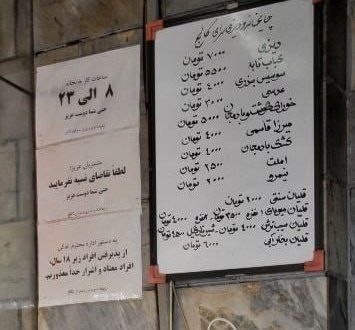 چایخانه و دیزی سرای کالج
دیزی ۷۰۰۰ تومان
کباب تابه ۵۵۰۰ تومان
سوسیس بندری ۴۰۰۰ تومان
عدسی ۳۰۰۰ تومان
بادمجان ۵۰۰۰ تومان
میرزا قاسمی ۴۰۰۰ تومان
کشک بادمجان ۴۰۰۰ تومان
املت ۲۵۰۰ تومان
نیمرو ۲۰۰۰ تومان
قلیان سنتی ۲۰۰۰ تومان
قلیان میوه‌ای
قلیان ۴۰۰۰ تومان
قلیان ۶۰۰۰ تومان
ساعات کار چایخانه
۸ الی ۲۳
حتی شما دوست عزیز
مشتریان عزیز!
لطفاً تقاضای نسیه نفرمایید
حتی شما دوست عزیز
به دستور اداره محترم اماکن
از پذیرفتن افراد زیر ۱۸ سال،
افراد معتاد و اشرار جداً معذوریم.